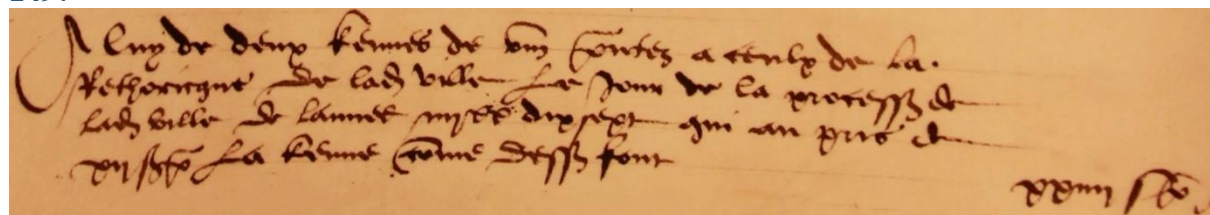 A luy de deux kennes de vin sortez a ceulx de la
Rethoricque de lad ville le jour de la process de
lad ville de lannee iiiixx dix sept qui au pris de
xii s la kenne come dess font
xxiiii s